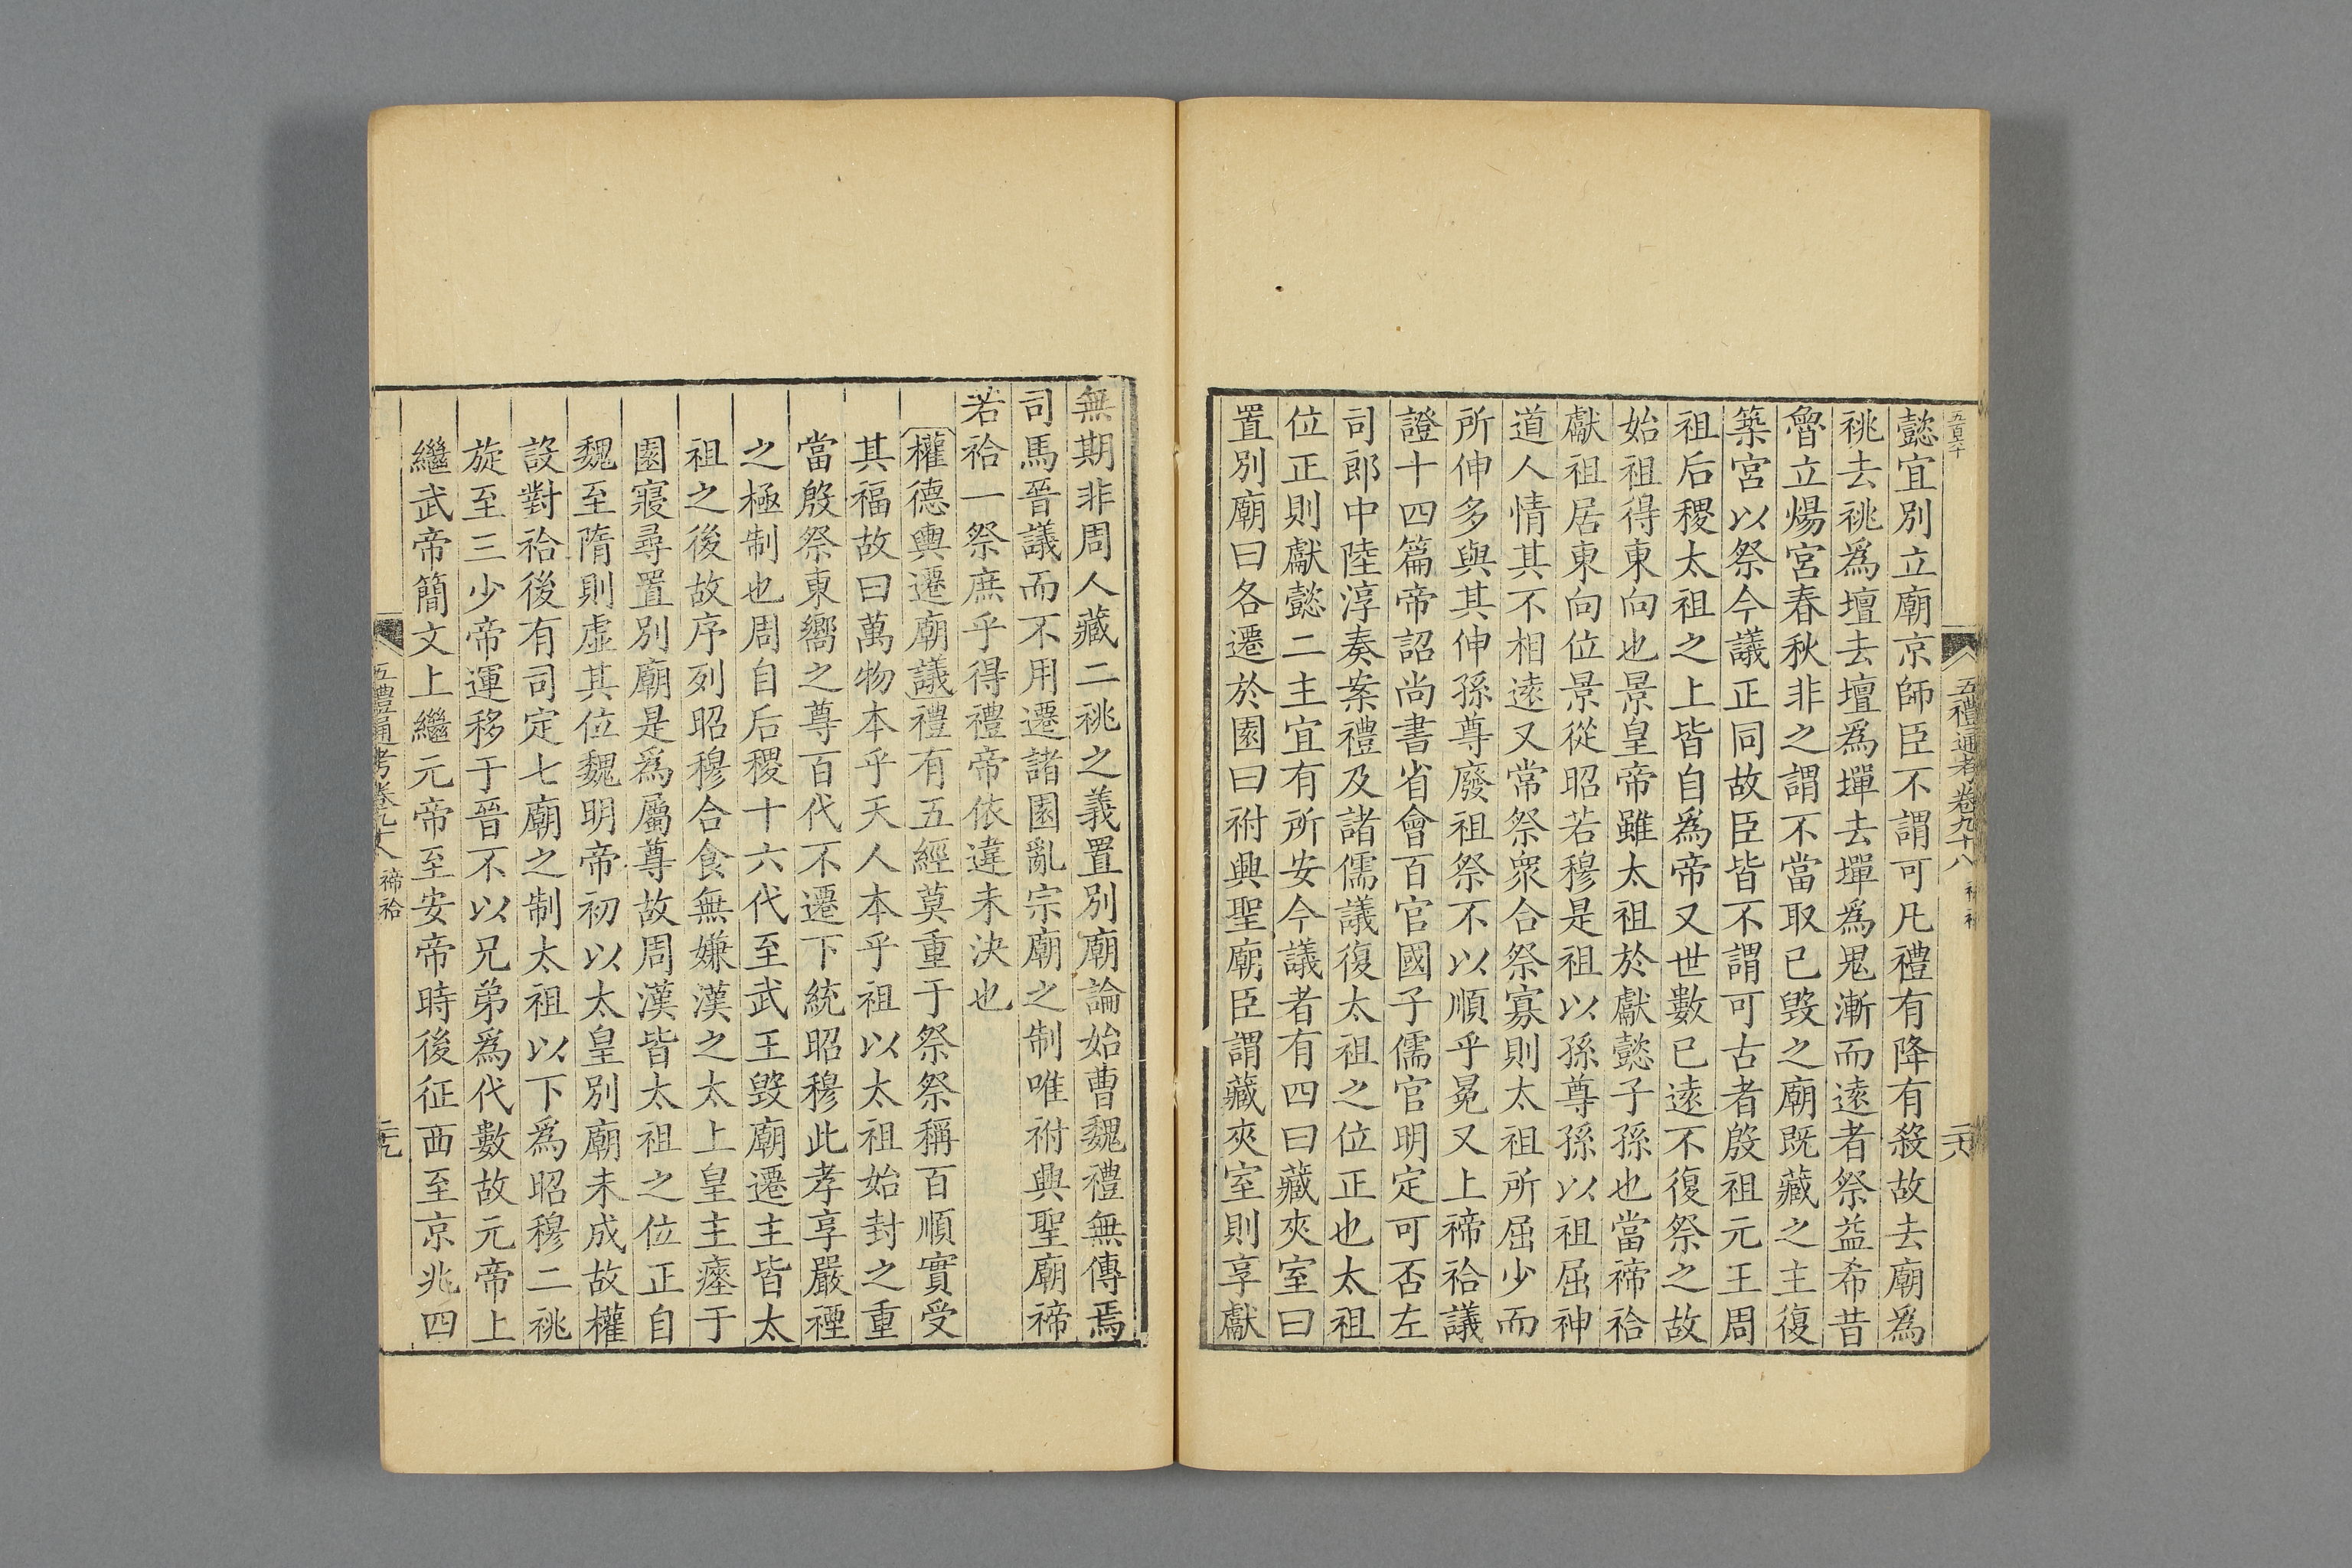 五百六十
五禮通考卷九十八
二十八
懿宜別立廟京師臣不謂可凡禮有降有殺故去廟爲
祧去祧爲壇去壇爲墠去墠爲鬼漸而遠者祭益希昔
魯立煬宮春秋非之謂不當取已毀之廟既藏之主復
築宮以祭今議正同故臣皆不謂可古者殷祖元王周
祖后稷太祖之上皆自爲帝又世數已遠不復祭之故
始祖得東向也景皇帝雖太祖於獻懿子孫也當禘祫
獻祖居東向位景從昭若穆是祖以孫尊孫以祖屈神
道人情其不相遠又常祭衆合祭寡則太祖所屈少而
所伸多與其伸孫尊廢祖祭不以順乎冕又上禘祫議
證十四篇帝詔尚書省會百官國子儒官明定可否左
司郎中陸淳奏案禮及諸儒議復太祖之位正也太祖
位正則獻懿二主宜有所安今議者有四曰藏夾室曰
置別廟曰各遷於園曰祔興聖廟臣謂藏夾室則享獻
無期非周人藏二祧之義置別廟論始曹魏禮無傳焉
司馬晉議而不用遷諸園亂宗廟之制唯祔興聖廟禘
若祫一祭庶乎得禮帝依違未決也
權德輿遷廟議禮有五經莫重于祭祭稱百順實受
其福故曰萬物本乎天人本乎祖以太祖始封之重
當殷祭東嚮之尊百代不遷下統昭穆此孝享嚴禋
之極制也周自后稷十六代至武王毀廟遷主皆太
祖之後故序列昭穆合食無嫌漢之太上皇主瘞于
園寢尋置別廟是爲屬尊故周漢皆太祖之位正自
魏至隋則虛其位魏明帝初以太皇別廟未成故權
設對祫後有司定七廟之制太祖以下爲昭穆二祧
旋至三少帝運移于晉不以兄弟爲代數故元帝上
繼武帝簡文上繼元帝至安帝時後征西至京兆四
五禮通考卷九十八 禘祫
二十九